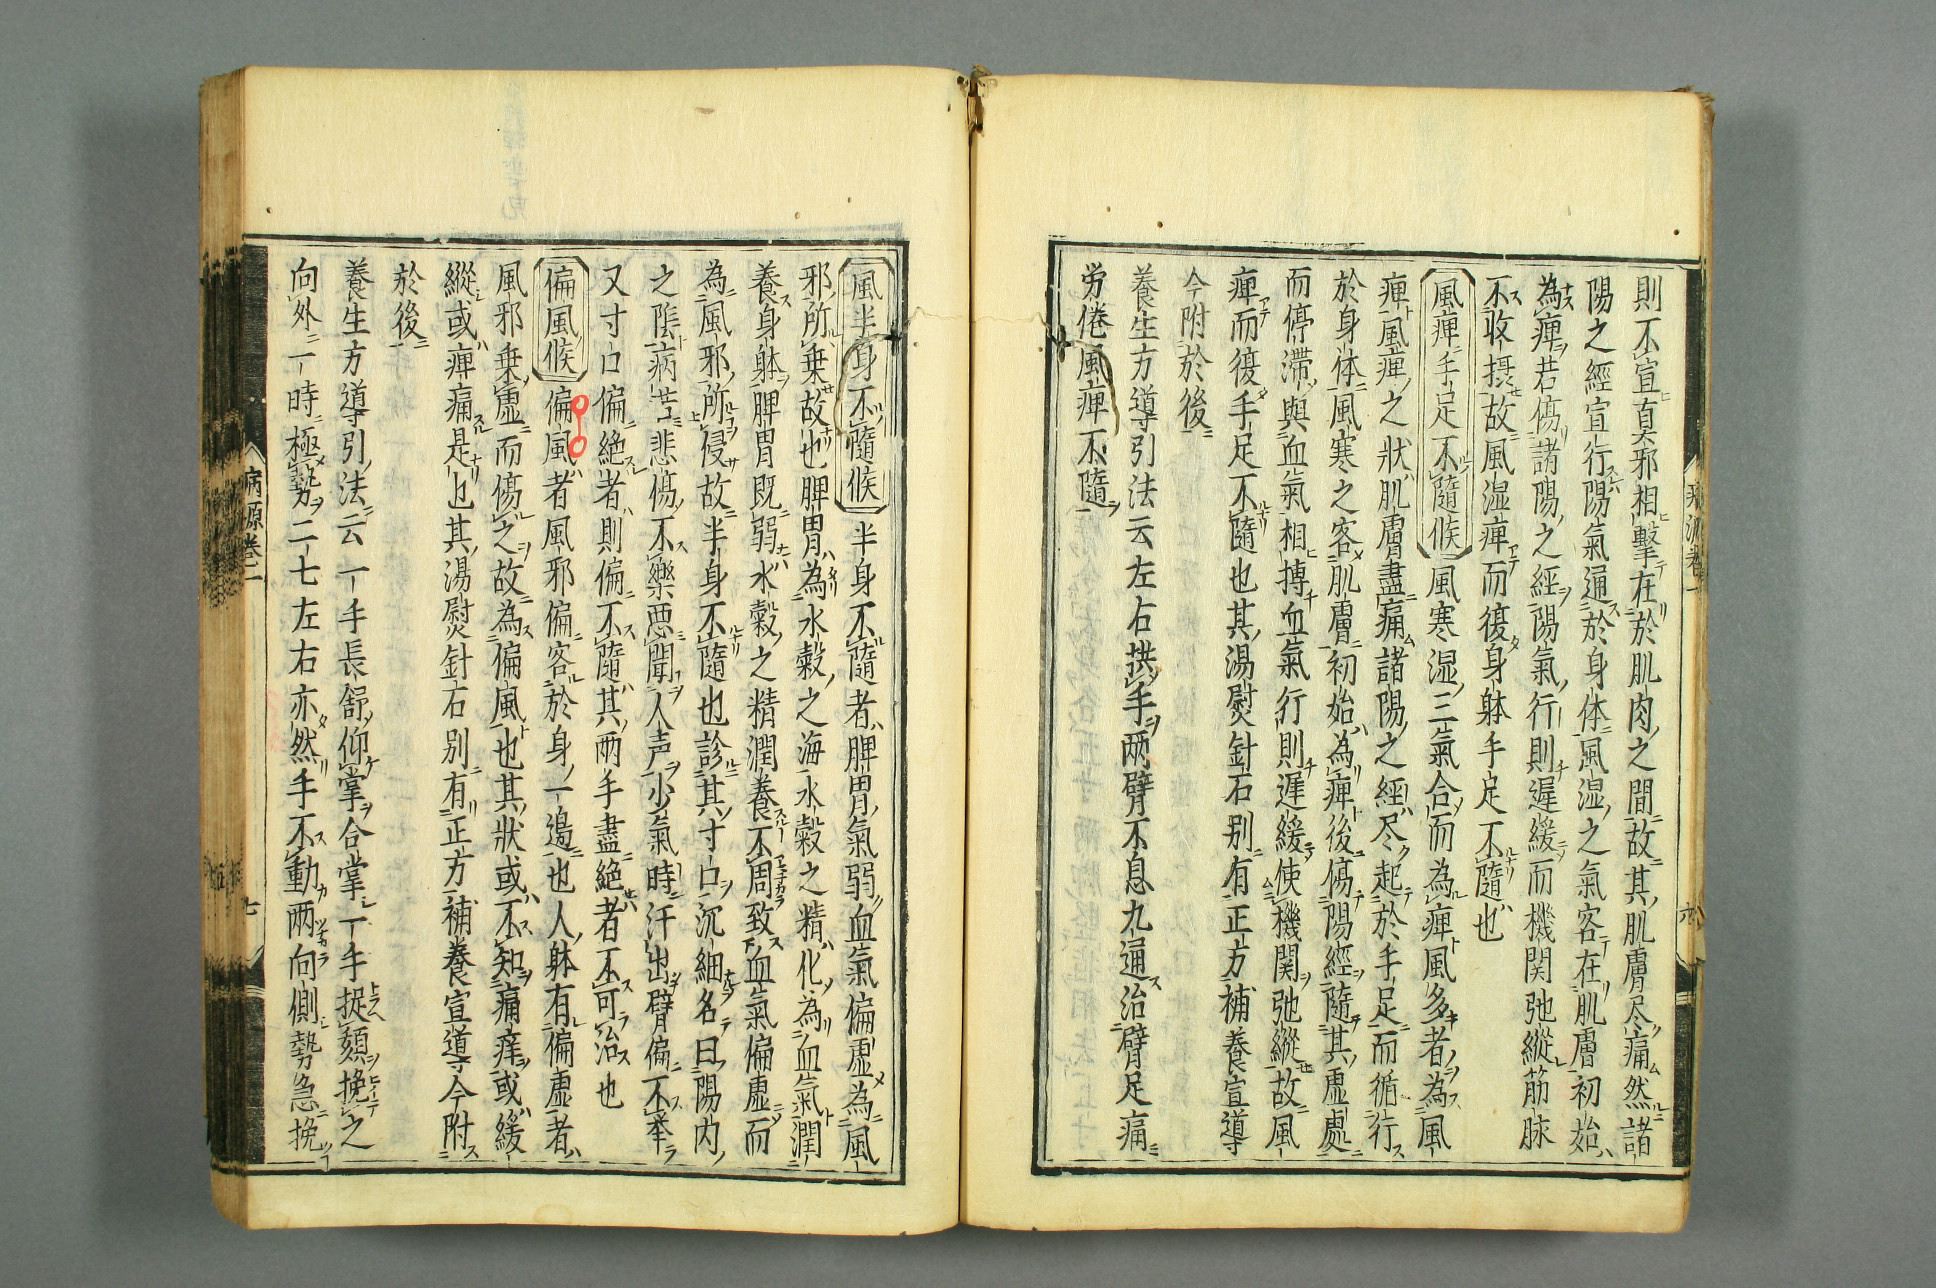 則不宣真邪相擊在於肌肉之間故其肌膚尽痛然諸
陽之經宣行陽氣通於身体風湿之氣客在肌膚初始
為痺若傷諸陽之經陽氣行則遲緩而機関弛縱筋脉
不收摂故風湿痺而復身躰手足不隨也
風痺手足不隨候 風寒湿三氣合而為痺風多者為風
痺風痺之狀肌膚盡痛諸陽之經尽起於手足而循行
於身体風寒之客肌膚初始為痺後傷陽經隨其虛處
而停滞與血氣相搏血氣行則遲緩使機関弛縱故風
痺而復手足不隨也其湯熨針石别有正方補養宣導
今附於後
養生方導引法云左右拱手两臂不息九通治臂足痛
労倦風痺不隨
風半身不隨候 半身不隨者脾胃氣弱血氣偏虛為風
邪所乗故也脾胃為水穀之海水穀之精化為血氣潤
養身躰脾胃既弱水穀之精潤養不周致血氣偏虛而
為風邪所侵故半身不隨也診其寸口沉細名曰陽内
之陰病苦悲傷不樂悪聞人声少氣時汗出臂偏不挙
又寸口偏絶者則偏不隨其两手盡絶者不可治也
偏風候 偏風者風邪偏客於身一邉也人躰有偏虛者
風邪乗虛而傷之故為偏風也其狀或不知痛痒或緩
縱或痺痛是也其湯熨針石别有正方補養宣導今附
於後
養生方導引法云一手長舒仰掌合掌一手捉頦挽之
向外一時極勢二七左右亦然手不動两向側勢急挽
病源巻一
七
六